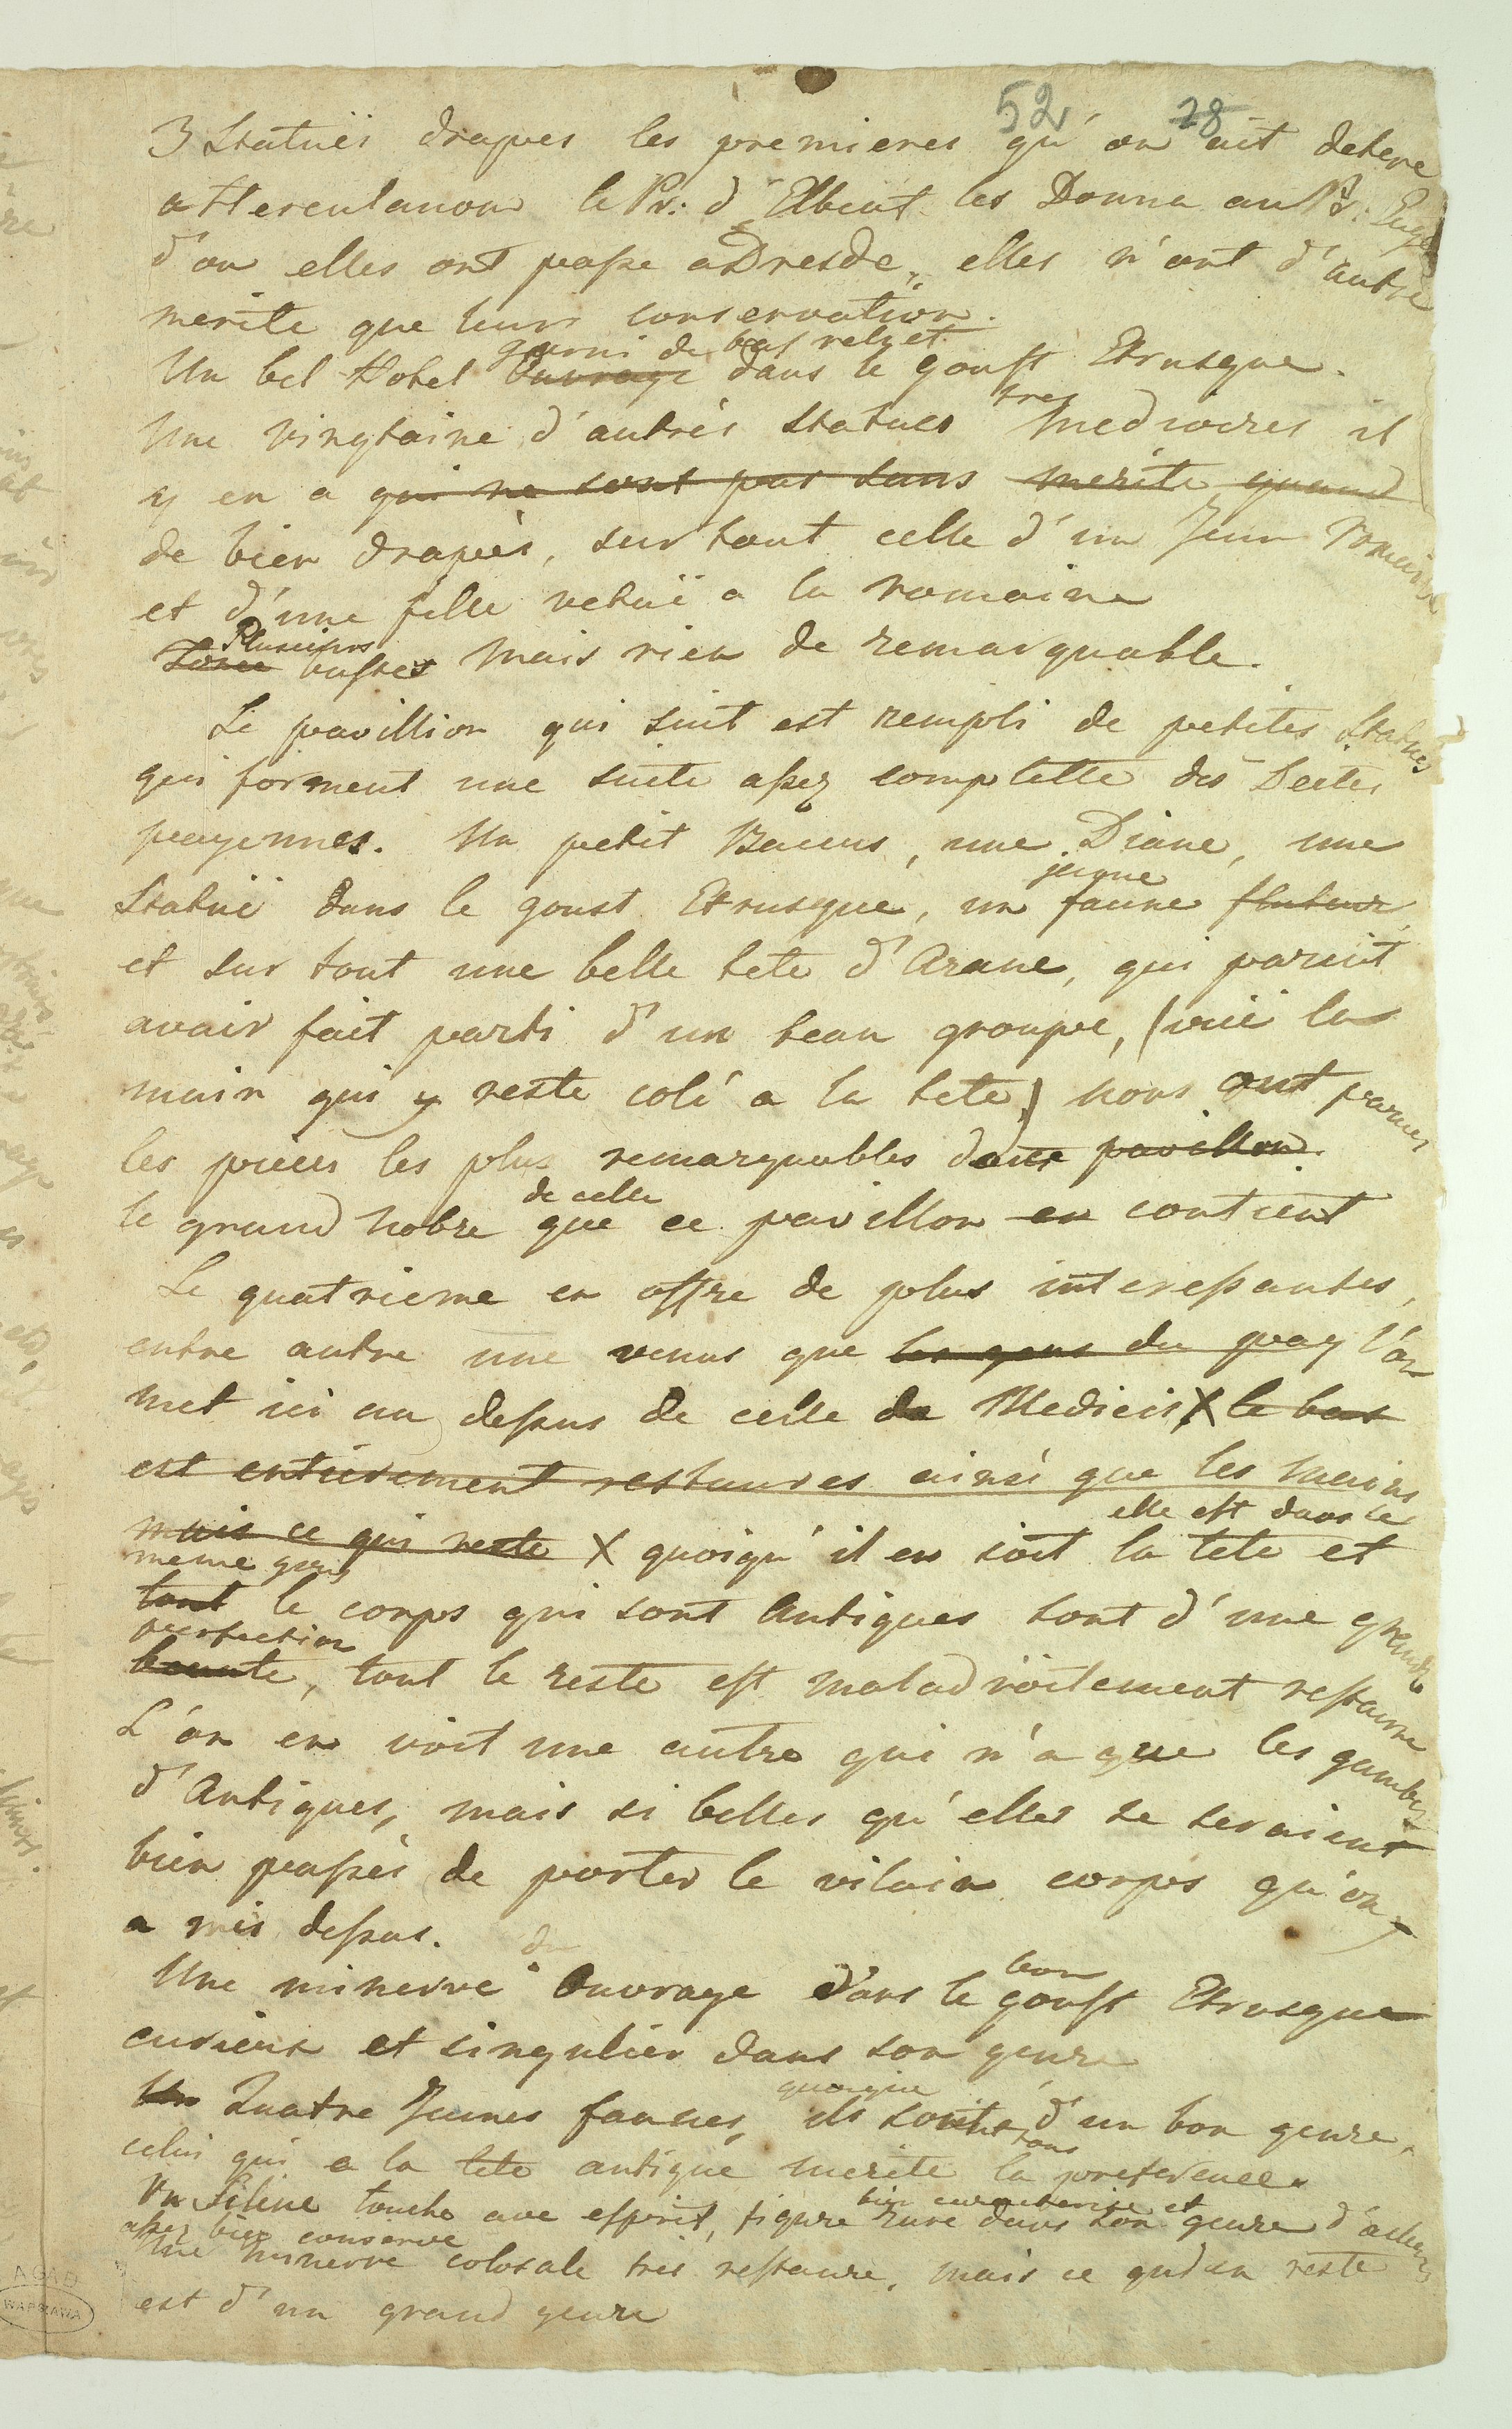 52 28
3 Statuës drapees les premieres qu'on ait detere
a Herculanom le Pr: d'Elbeut les Donna au Pr: Eug
d'ou elles ont passe a Dresde, elles n'ont d'autre
merite que leurs conservation.
garni de bas relyet
Un bel Hotel Ouvrage dans le goust Etrusque.
tres
Une vingtaine d'autrés Statues mediocres il
y en a qui ne sont pas sans merite quand
de bien drapeés, sur tout celle d'un Jeun Romain
et d'une fille vetuë a la romaine
Plusieurs
bustes mais rien de remarquable.
Le pavillion qui suit est rempli de petites Statues
qui forment une suite assez complette des Deites
payennes. Un petit Baccus, une Diane, une
jeune
Statuë dans le goust Etrusque, un faune fluteur,
et sur tout une belle tete d'Arane, qui paroit
avair fait parti d'un beau groupe, (vuë la
main qui y reste colé a la tete) nous ont parues
les pieces les plus remarquables dans pavillon.
de celle
le grand nobre que ce pavillon en contient
Le quatrieme en offre de plus interessantes,
entre autre une venus que les gens du pay l'on
met ici au dessus de celle de Medicis X le bas
est entierement restaures ainsi que les mains
elle est dans le
mais ce qui reste X quoiqu'il en soit la tete et
meme gout
tout le corps qui sont Antiques sont d'une grande
perfection
beaute, tout le reste est maladroitement restaure
L'on en voit une autre qui n'a que les jambes
d'Antiques, mais si belles qu'elles se seraient
bien passées de porter le vilain corps qu'on
a mis dessus.
du
bon
Une minerve Ouvrage dans le goust Etrusque
curieux et singulier dans son genre
quoique
Un Quatre Jeunes faunes, ils sont d'un bon genre,
tous
celui qui a la tete antique merite la preference.
bien caracterise et
Un Silene touche ave esprit, figure rare dans son genre d'ailleurs
assez bien conserve
Une minerve colosale tres restaure, mais ce qui en reste
est d'un grand genre
AGAD
WARSZAWA